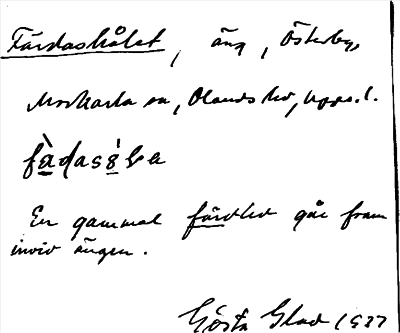 Färdashålet, äng, Österby,
Morkarla sn, Olands hd, Upps. l.
En gammal färdled går fram
invid ängen.
Gösta Glad 1937